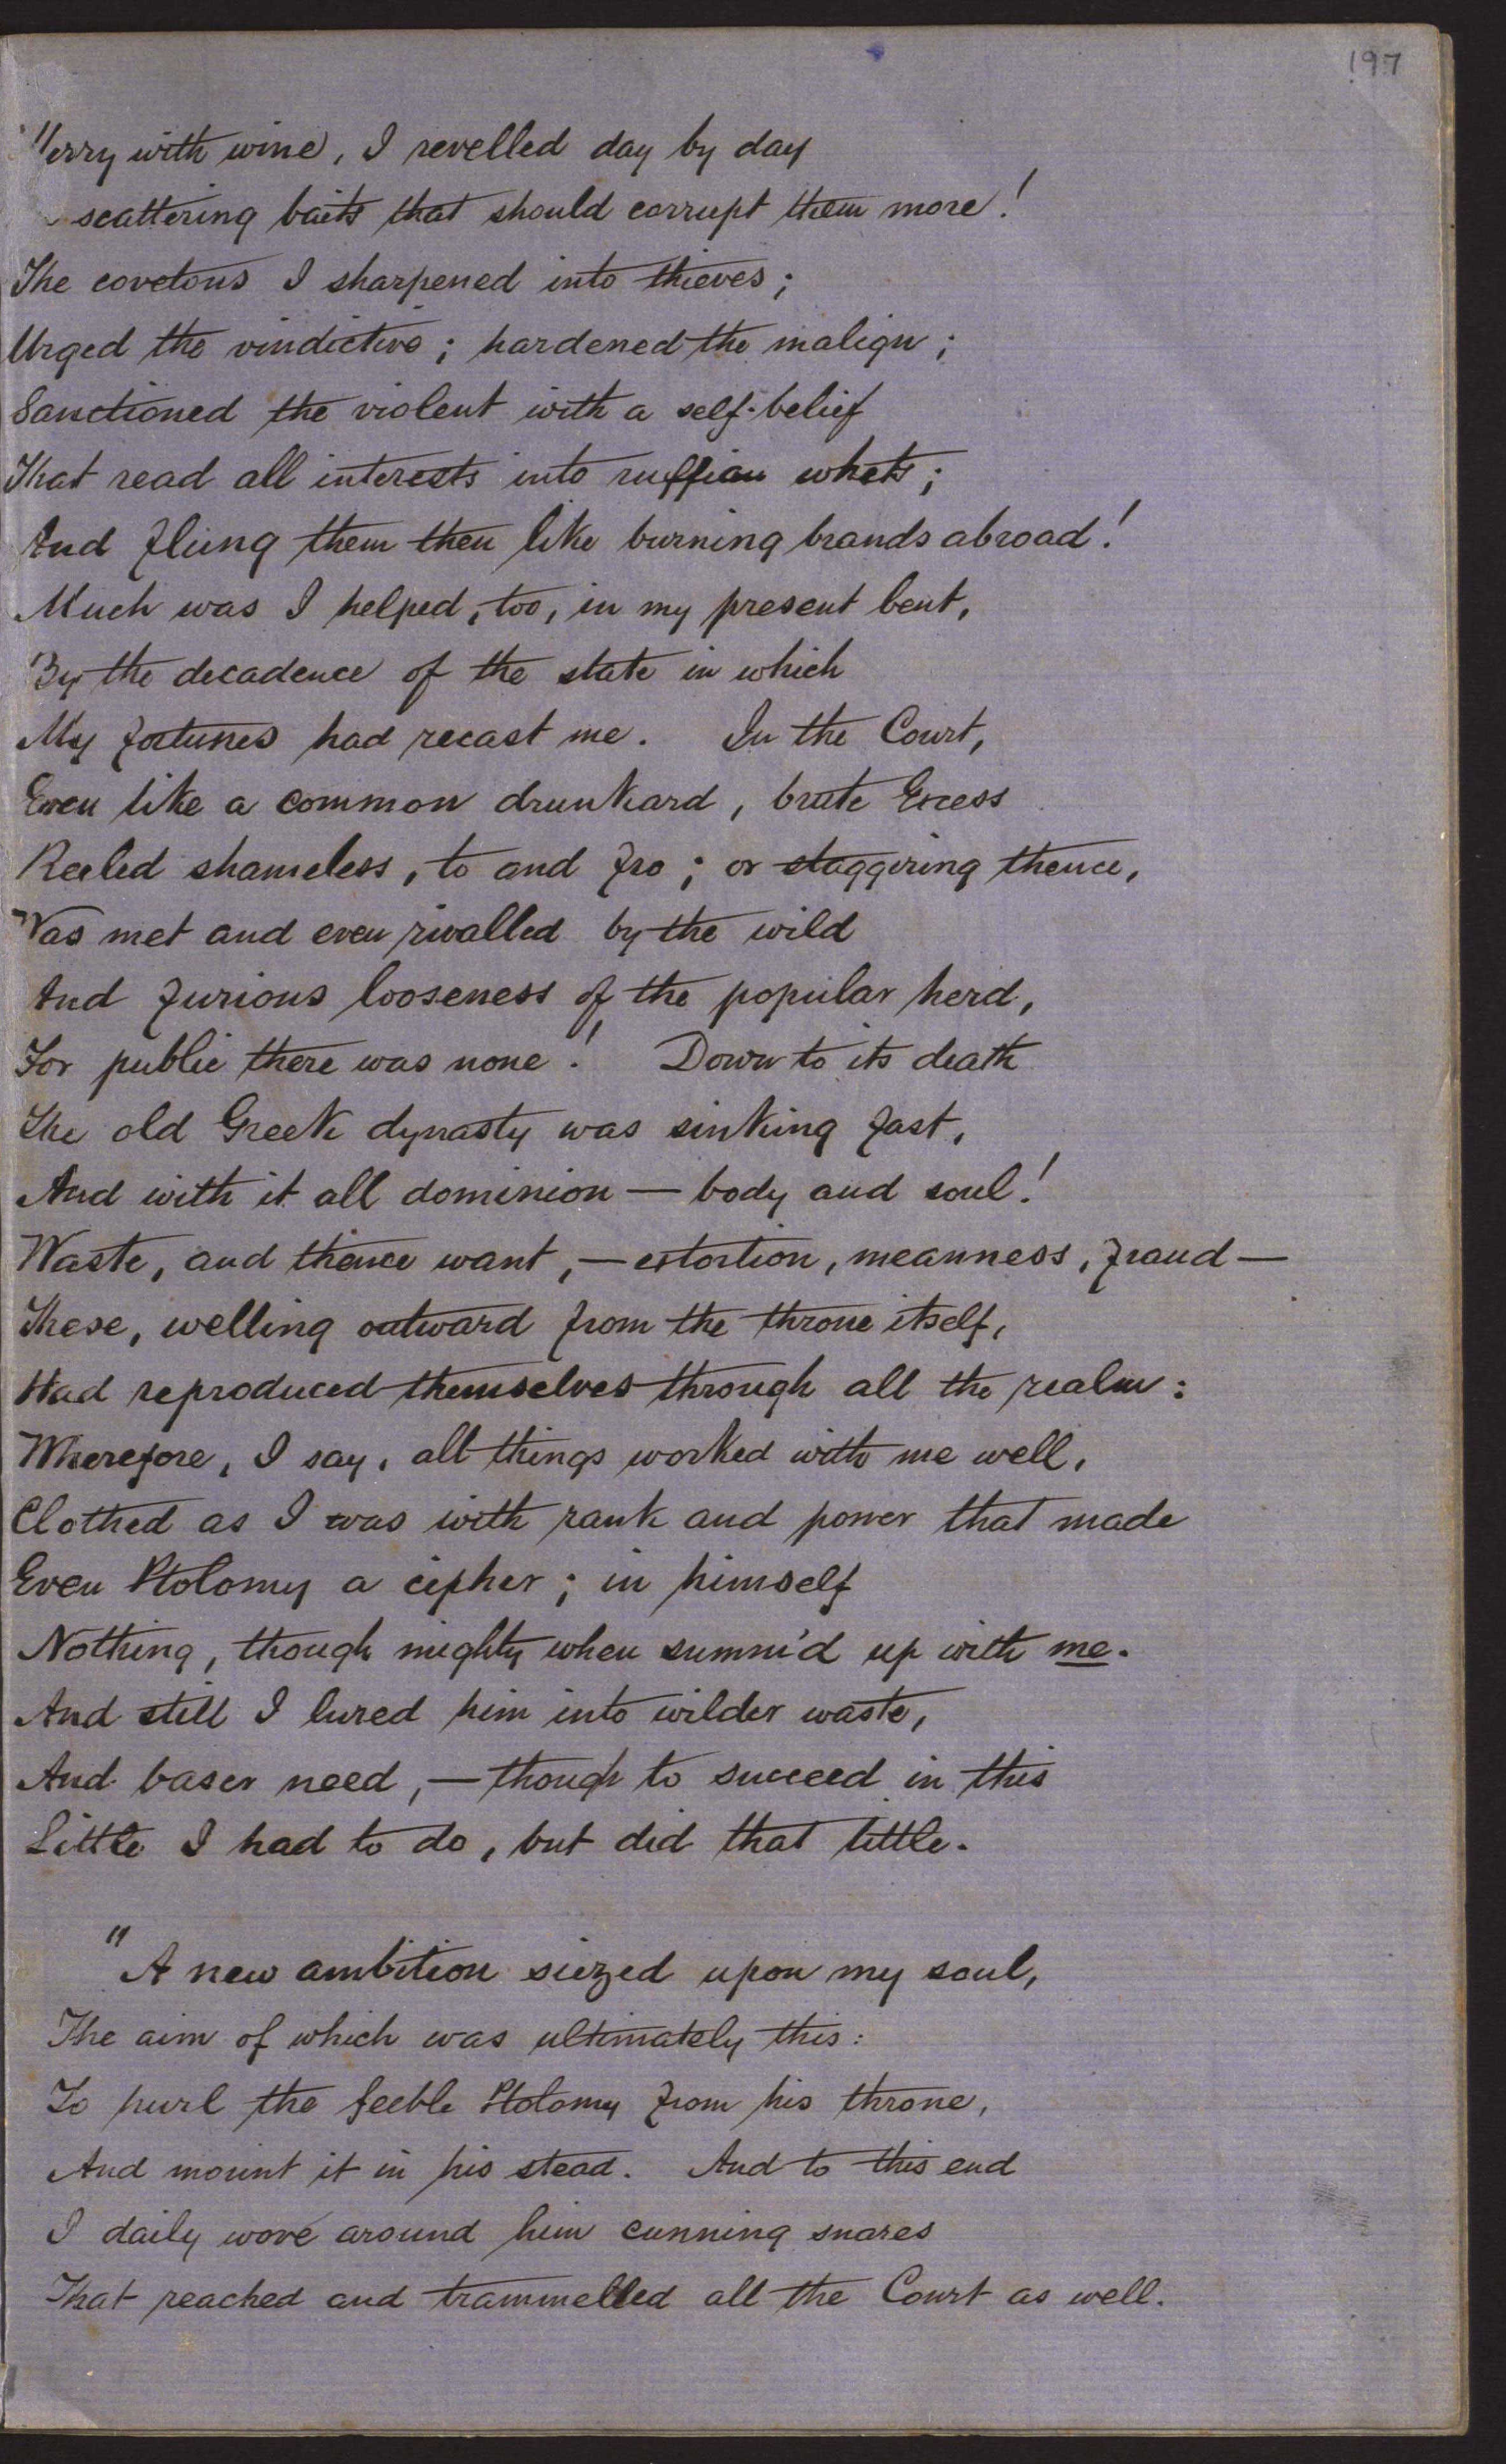 197
Merry with wine, I revelled day by day
scattering baits that should corrupt them more!
The covetous I sharpened into thieves;
Urged the vindictive; hardened the malign;
Sanctioned the violent with a self-belief
That read all interests into ruffian whets;
And flung them then like burning brands abroad!
Much was I helped, too, in my present bent,
By the decadence of the state in which
My fortunes had recast me. In the Court,
Even like a common drunkard, brute Excess
Reeled shameless, to and fro; or staggering thence,
Was met and even rivalled by the wild
And furious looseness of the popular herd,
For public there was none! Down to its death
The old Greek dynasty was sinking fast,
And with it all dominion — body and soul!
Waste, and thence want, — extortion, meanness, fraud —
These, welling outward from the throne itself,
Had reproduced themselves through all the realm:
Wherefore, I say, all things worked with me well,
Clothed as I was with rank and power that made
Even Ptolomy a cipher; in himself
Nothing, though mighty when summ'd up with me.
And still I lured him into wilder waste,
And baser need, — though to succeed in this
Little I had to do, but did that little.
"A new ambition siezed upon my soul,
The aim of which was ultimately this:
To hurl the feeble Ptolomy from his throne,
And mount it in his stead. And to this end
I daily wove around him cunning snares
That reached and trammelled all the Court as well.